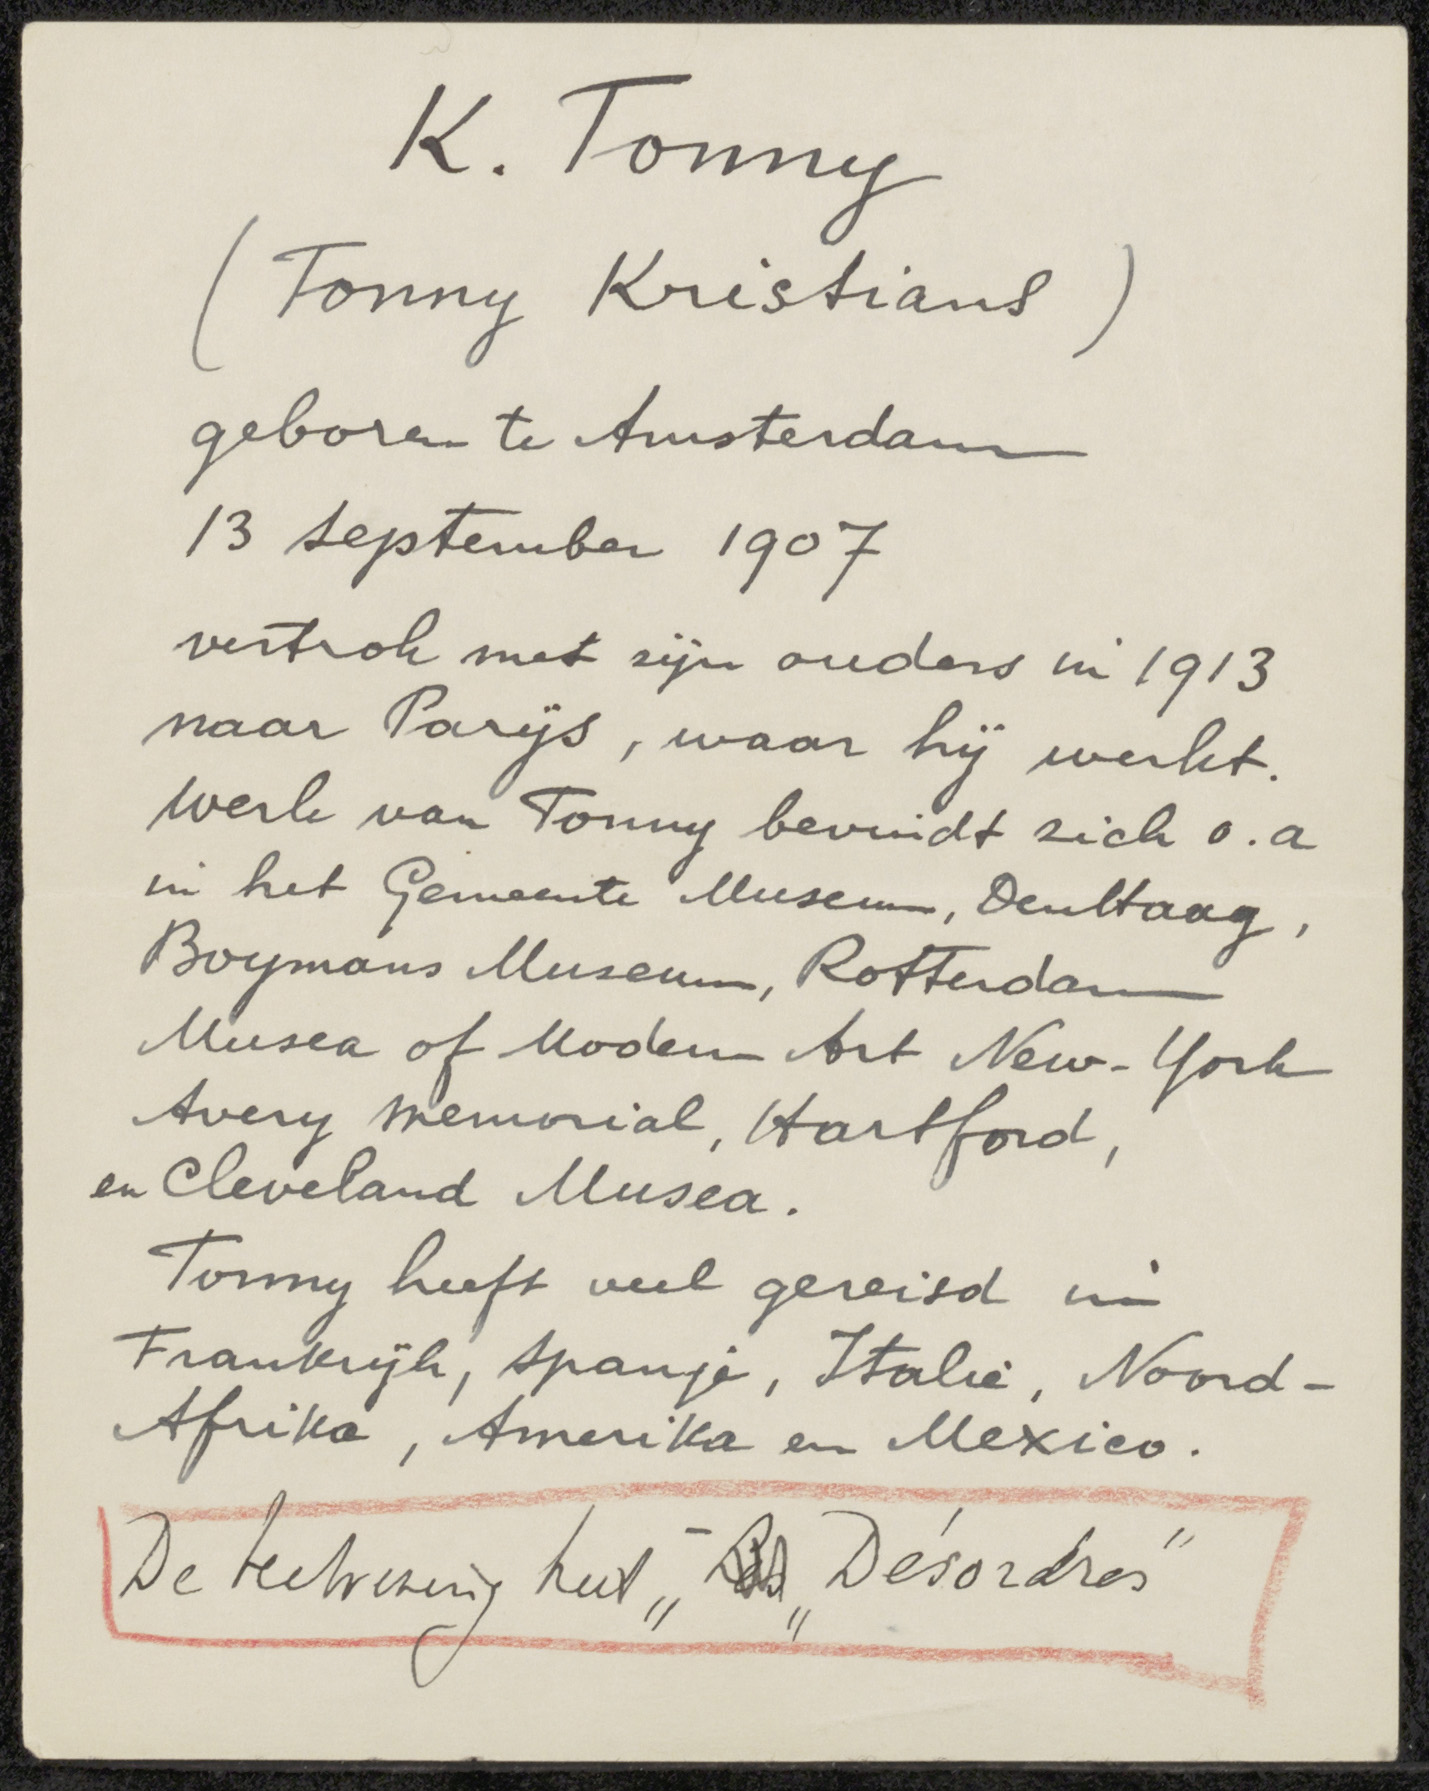 K. Tonny
(Tonny Kristians)
geboren te Amsterdam
13 september 1907
vertrok met zijn ouders in 1913
naar Parijs, waar hij werkt.
Werk van Tonny bevindt zich o.a
in het Gemeente Museum, Den Haag,
Boymans Museum, Rotterdam
Musea of Modern Art New-York
Avery memorial, Hartford,
en Cleveland Musea.
Tonny heeft veel gereisd in
Frankrijk, Spanje, Italië, Noord-
Afrika, Amerika en Mexico.
De teekening heet „ „Désordres"